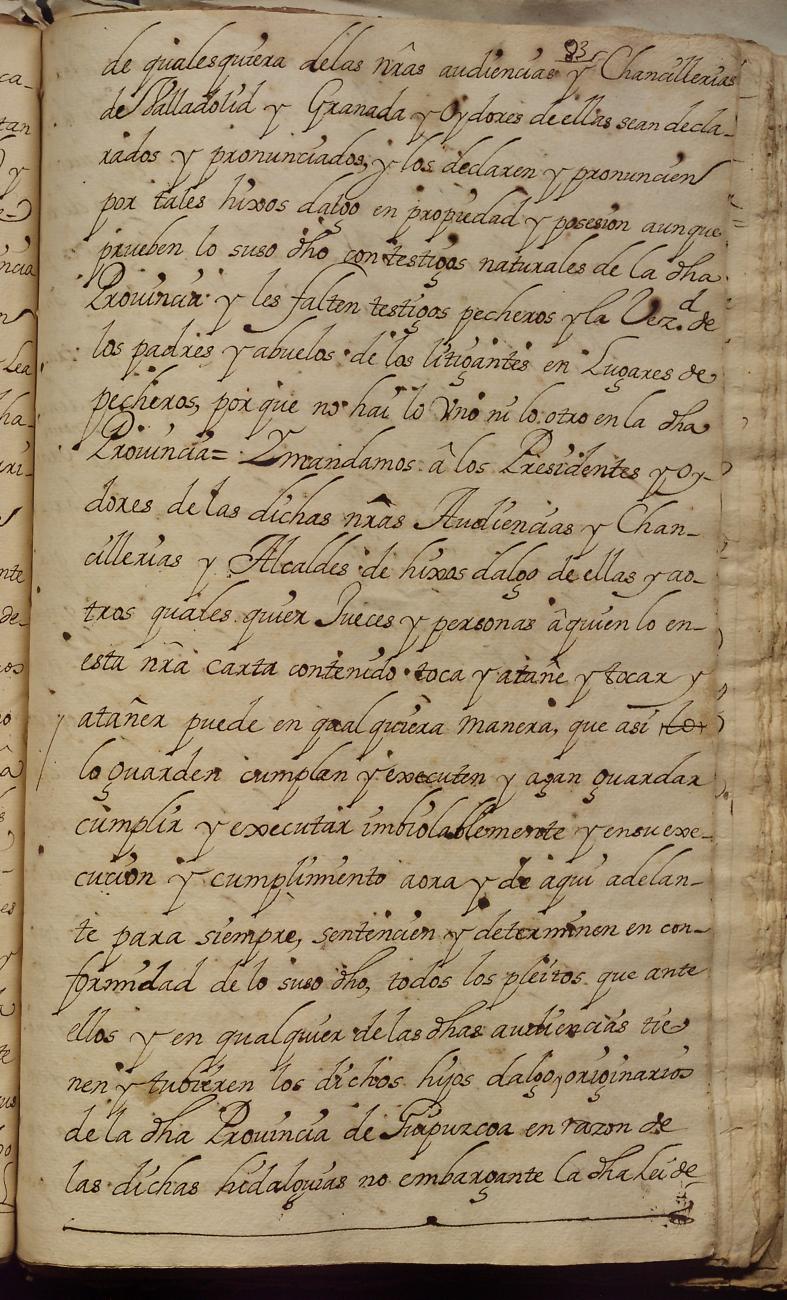 93
de qualesquiera delas nr̃as audiencias y Chancillerias
de Valladolid y Granada y Oydores de ellas sean decla-
rados y pronunciados, y los declaren y pronuncien
por tales hixos dalgo en propiedad y posesion aunque
prueben lo suso dho con testigos naturales de la dha
Prouincia y les falten testigos pecheros y la Vez.d de
los padres y abuelos de los litigantes en Lugares de
pecheros, por que no hai lo Vno ni lo otro en la dha
Prouincia= Y mandamos â los Presidentes y Oy-
dores de las dichas nr̃as Audiencias y Chan-
cillerias y Alcaldes de hixos dalgo de ellas y ao-
tros quales quier Jueces y personas â quien lo en-
esta nr̃a carta contenido toca y atañe y tocar y
atañer puede en qualquiera manera, que asi lo
lo guarden cumplan y executen y agan guardar
cumplir y executar imbiolablemente y ensu exe-
cucion y cumplimento aora y de aqui adelan-
te para siempre, sentencien y determinen en con-
formidad de lo suso dho, todos los pleitos que ante
ellos y en qualquier de las dhas audiencias tie
nen y tubieren los dichos hijos dalgo, originarios
de la dha Prouincia de Guipuzcoa en razon de
las dichas hidalguias no embargante la dha Lei de-